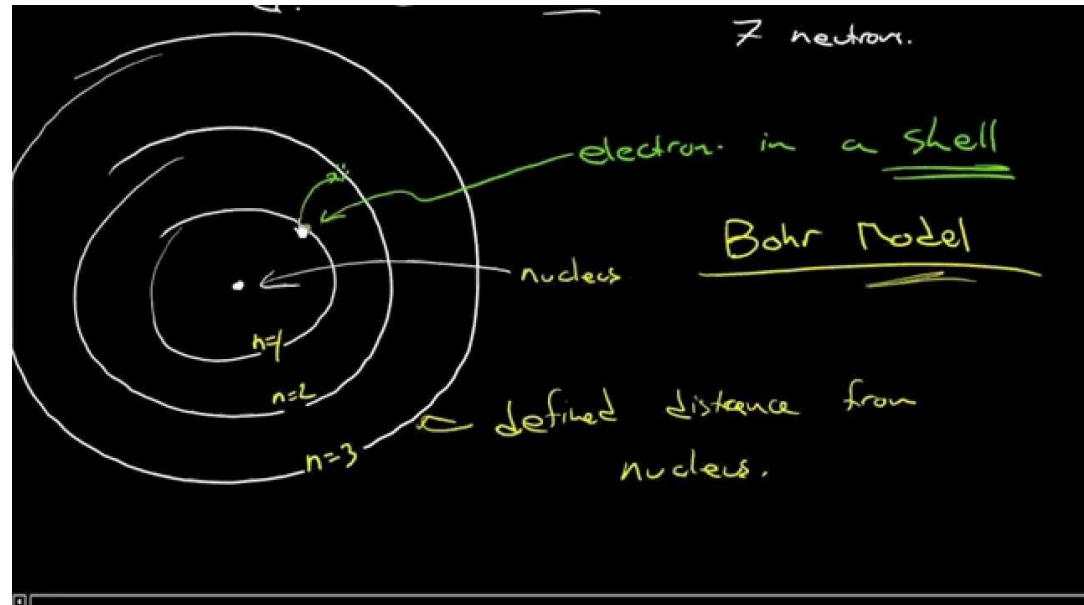 7 neutron.
electron. in a shell
Bohr Model
nucleus
n=1
n=2
n=3
defined distance from
nucleus.